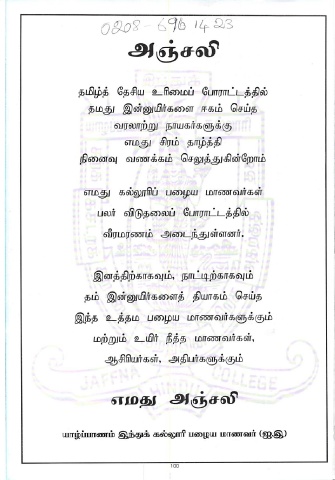 0208-696 1423
அஞ்சலி
தமிழ்த் தேசிய உரிமைப் போராட்டத்தில்
தமது இன்னுயிர்களை ஈகம் செய்த
வரலாற்று நாயகர்களுக்கு
எமது சிரம் தாழ்த்தி
நினைவு வணக்கம் செலுத்துகின்றோம்
எமது கல்லூரிப் பழைய மாணவர்கள்
பலர் விடுதலைப் போராட்டத்தில்
வீரமரணம் அடைந்துள்ளனர்.
இனத்திற்காகவும், நாட்டிற்காகவும்
தம் இன்னுயிர்களைத் தியாகம் செய்த
இந்த உத்தம பழைய மாணவர்களுக்கும்
மற்றும் உயிர் நீத்த மாணவர்கள்,
ஆசிரியர்கள், அதிபர்களுக்கும்
JAFFNA HINDU COLLEGE
எமது அஞ்சலி
யாழ்ப்பாணம் இந்துக் கல்லூரி பழைய மாணவர் (ஐ.இ)
100